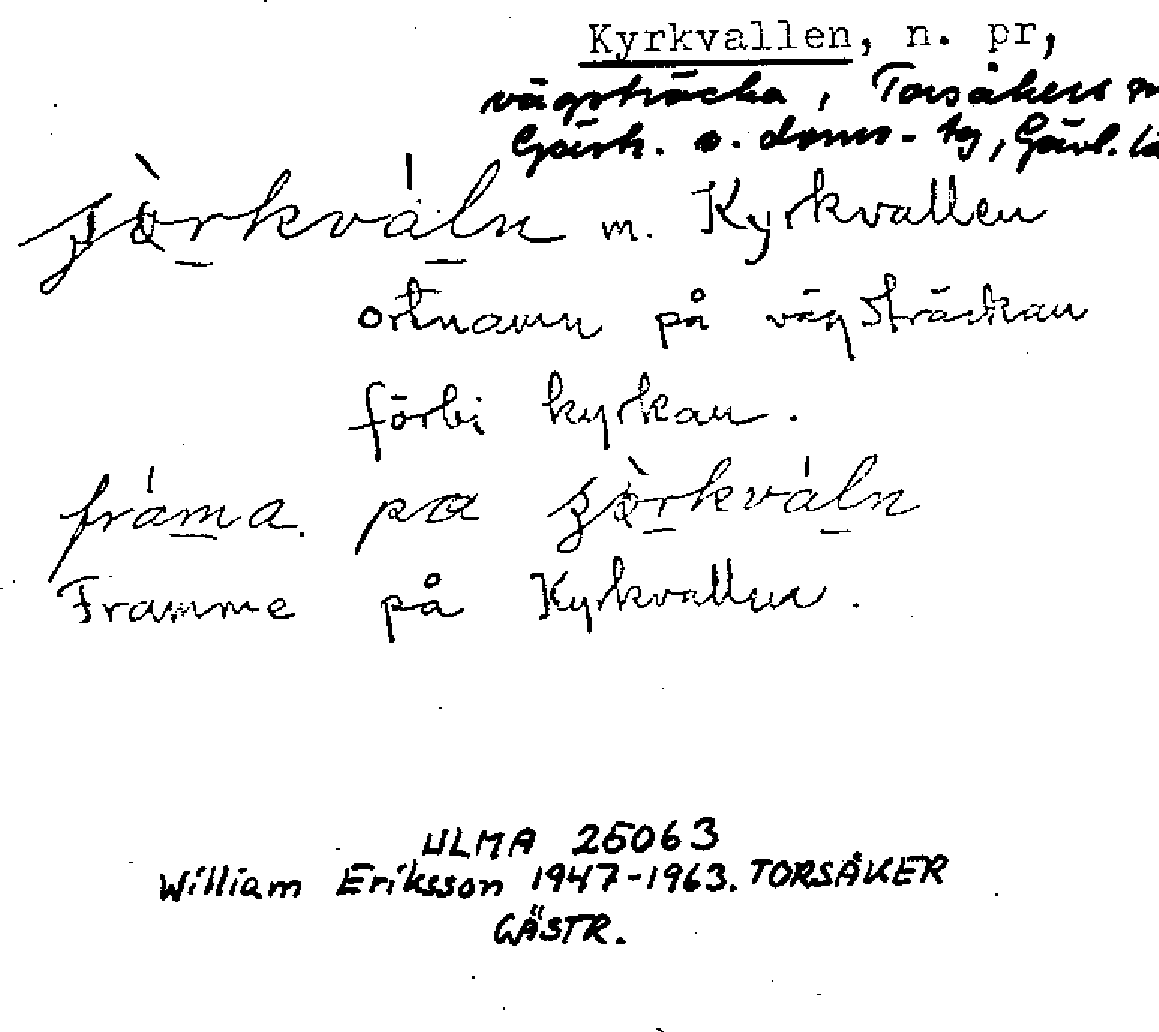 Kyrkvallen, n. pr,
vägsträcka, Torsåkers
Gästr. o. doms-tg, Gävl. lä
m. Kyrkvallen
ortnamn på vägsträckan
förbi kyrkan.
fráma pa
Framme på Kyrkvallen.
ULMA 25063
William Eriksson 1947-1963. TORSÅKER
GÄSTR.